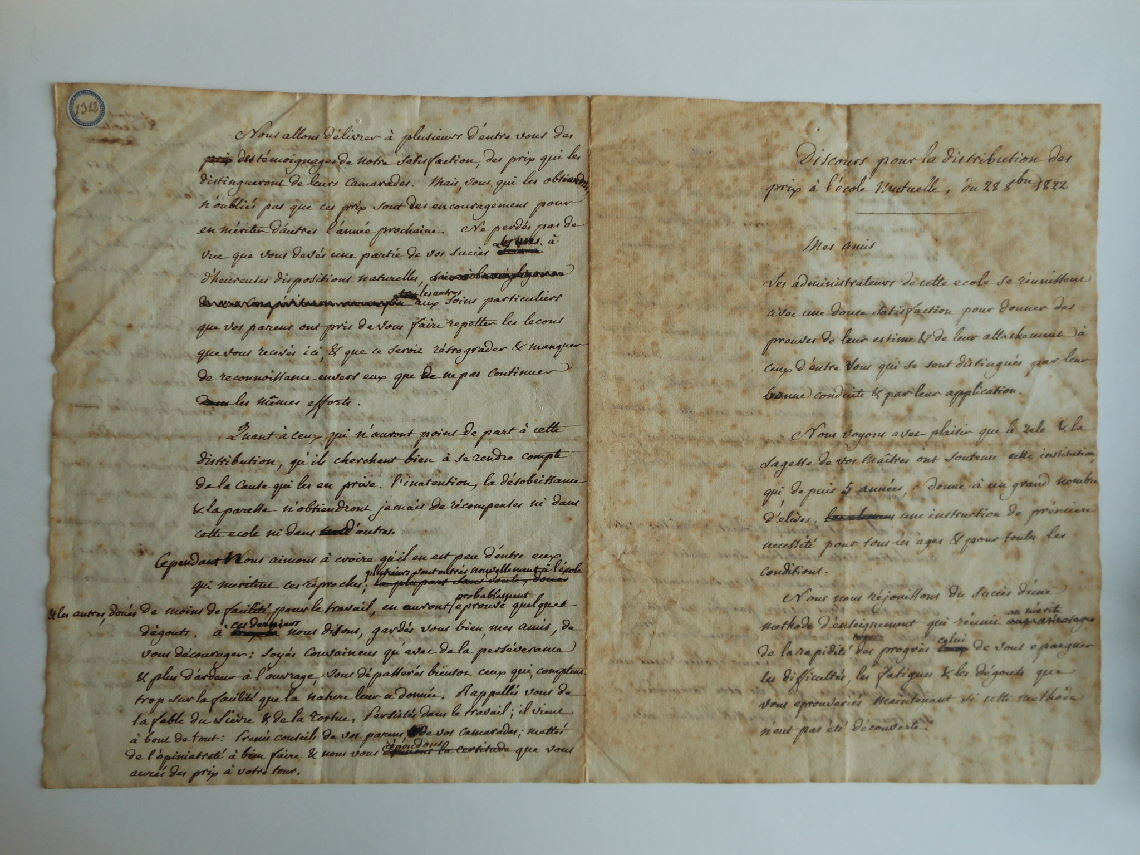 1312
Discours pour la distribution des
prix à l'école Mutuelle, du 28 8bre 1822
Mes amis
Les administrateurs de cette ecole se réunissent
avec une douce satisfaction pour donner des
preuves de leur estime & de leur attachement à
ceux d'entre vous qui se sont distingués par leur
bonne conduite & par leur application.
Nous voyons avec plaisir que le zele & la
sagesse de vos Maîtres ont soutenu cette institution,
qui depuis 5 années, donne à un grand nombre
d'élèves, une instruction de première
necessité pour tous les ages & pour toutes les
conditions.
Nous nous réjouissons du succès d'une
methode d'enseignement qui reunit au mérite
de la rapidité des progrès celui de vous épargner
les difficultés, les fatigues & les dégouts que
vous eprouveriés maintenant si cette methode
n'eut pas été découverte.
Nous allons délivrer à plusieurs d'entre vous des
prix des témoignages de notre satisfaction, des prix qui les
distingueront de leurs camarades. Mais, vous, qui les obtiendrés,
n'oubliés pas que ces prix sont des encouragemens pour
en mériter d'autres l'année prochaine. Ne perdés pas de
vue que vous devés une partie de vos succès les uns à
d'heureuses dispositions naturelles,
les autres aux soins particuliers
que vos parens ont pris de vous faire repetter les lecons
que vous recevés ici, & que ce seroit rétrograder & manquer
de reconnoissance envers eux que de ne pas continuer
les mêmes efforts.
Quant à ceux qui n'auront point de part à cette
distribution, qu'ils cherchent bien à se rendre compte
de la cause qui les en prive. l'inatention, la désobéissance
& la paresse n'obtiendront jamais de récompenses ni dans
cette ecole ni dans d'autres.
Cependant Nous aimons à croire qu'il en est peu d'entre eux,
qui méritent ces reproches; plusieurs sont entrés nouvellement à l'école
& les autres, doués de moins de facilité pour le travail, en auront probablement eprouvé quelques
dégouts. à ces derniers nous disons, gardés vous bien, mes amis, de
vous décourager: soyés convaincus qu'avec de la perséverance
& plus d'ardeur à l'ouvrage, vous dépasserés bientot ceux qui comptent
trop sur la facilité que la nature leur a donnée. Rappellés vous de
la fable du Lièvre & de la Tortue. Persistés dans le travail; il vient
à bout de tout: Prenés conseils de vos parens de vos camarades; mettés
de l'opiniatreté à bien faire & nous vous répondons que vous
aurés des prix à votre tour.